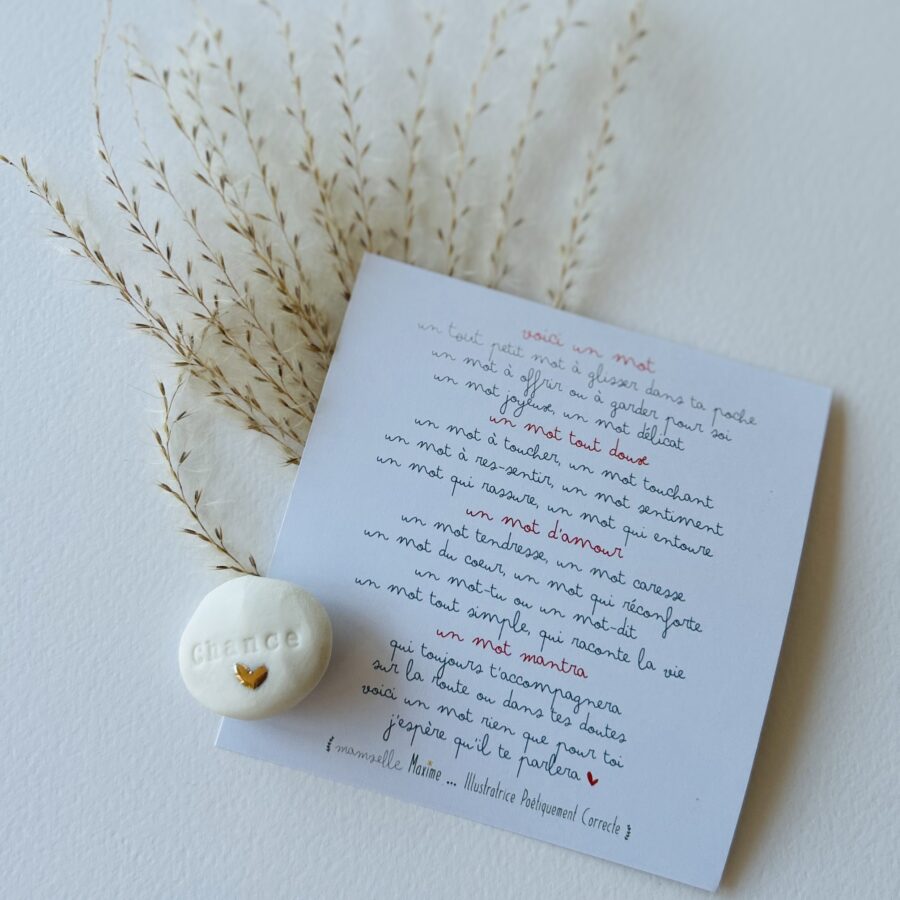 voici un mot
un tout petit mot à glisser dans ta poche
un mot à offrir ou à garder pour soi
un mot joyeux, un mot délicat
un mot tout doux
un mot à toucher, un mot touchant
un mot à res-sentir, un mot sentiment
un mot qui rassure, un mot qui entoure
un mot d'amour
un mot tendresse, un mot caresse
un mot du coeur, un mot qui réconforte
un mot-tu ou un mot-dit
un mot tout simple, qui raconte la vie
un mot mantra
qui toujours t'accompagnera
sur la route ou dans tes doutes
voici un mot rien que pour toi
j'espère qu'il te parlera
mamzelle Maxime ... Illustratrice Poétiquement Correcte
Chance